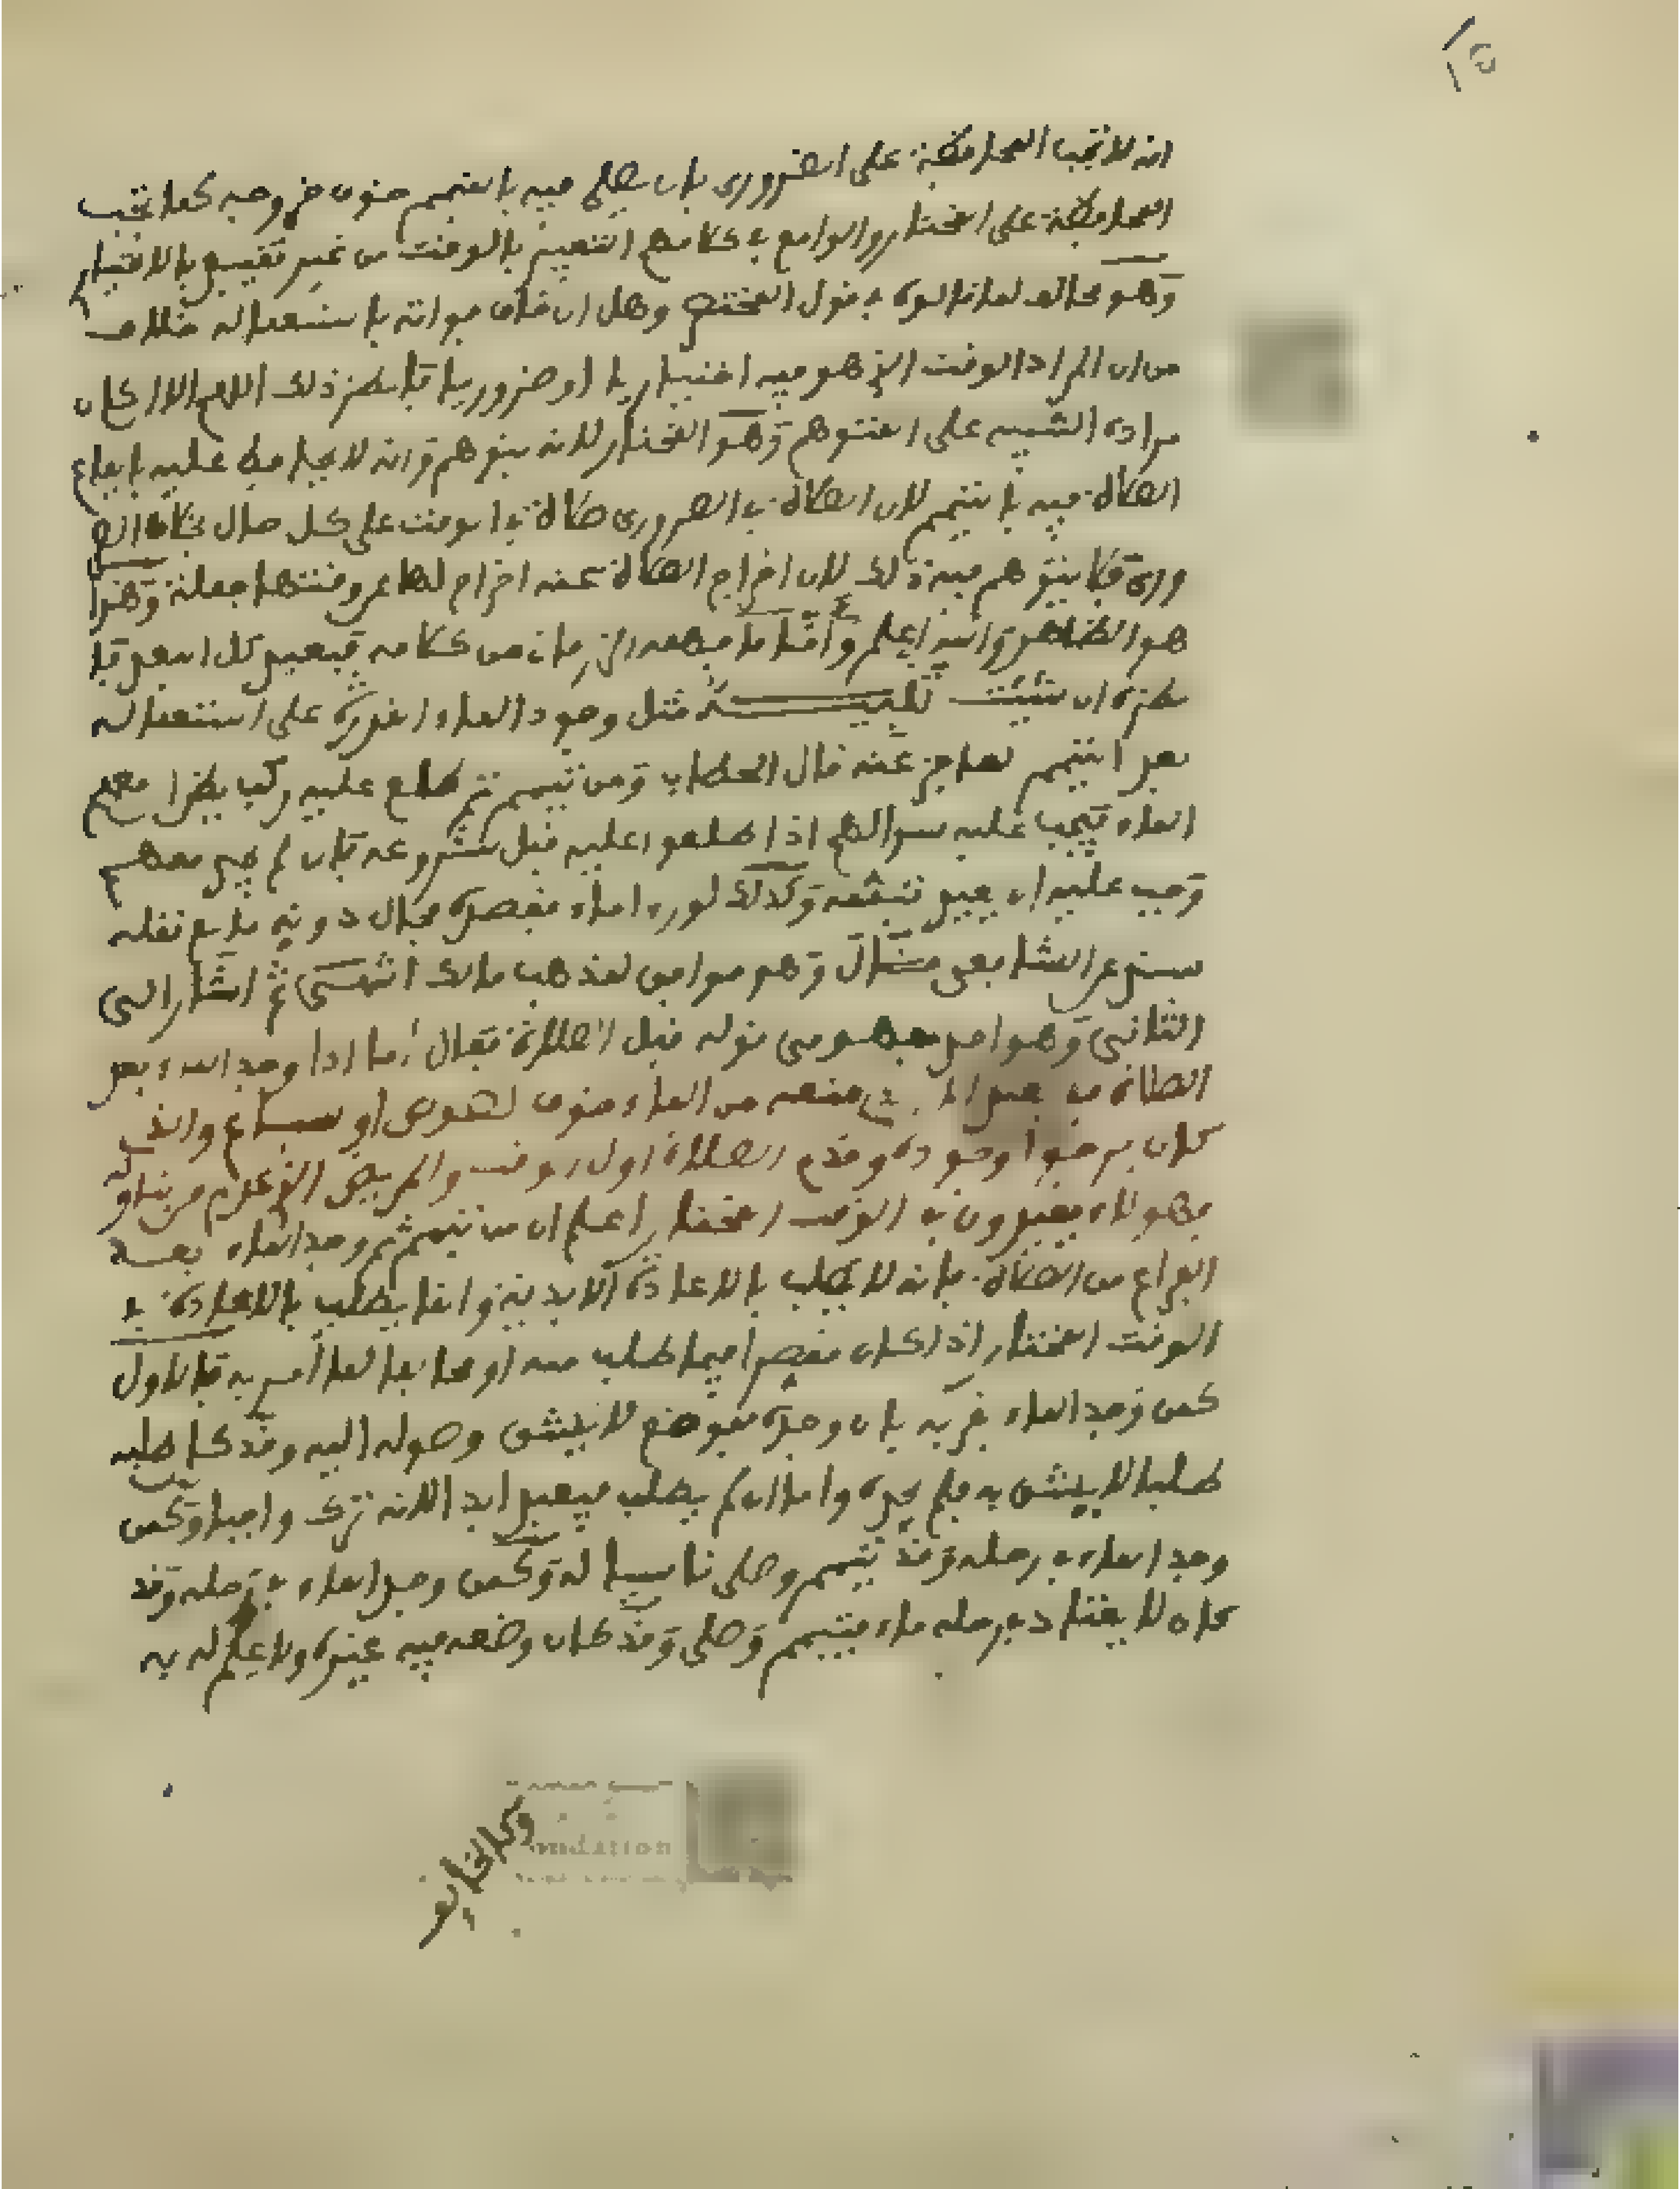 انه لا تجب المحافظة على الضروري بان يصلي فيه بالتيمم خوف خروجه كما تجب
المحافظة على المختار والواقع في كلامهم التعبير بالوقت من غير تقييد بالاختيار
وهو مخالف لما قالوه في قول المختصر وهل ان خاف فواته باستعماله خلاف
من ان المراد الوقت الذي هو فيه اختياريا او ضروريا فانظر ذلك اللهم الا ان كان
مراده التنبيه على المتوهم وهو المختار لانه يتوهم انه لا يحافظ عليه بايقاع
الصلاة فيه بالتيمم لان الصلاة في الضروري صلاة في الوقت على كل حال بخلاف الضر
وري فلا يتوهم فيه ذلك لان اخراج الصلاة عنه اخراج لها عن وقتها جملة وهذا
هو الظاهر والله اعلم وأما ما فهمه الزرقاني من كلامه فبعيد كل البعد فا
نظره ان شئت تنبيه مثل وجود الماء القدرة على استعماله
بعد التيمم لعاجز عنه قال الحطاب ومن تيمم ثم طلع عليه ركب يظن معهم
الماء فيجب عليه سؤالهم اذا طلعوا عليه قبل شروعه فان لم يجد معهم
وجب عليه ان يعيد تيممه وكذلك لو رءا ماء فقصده فحال دونه مانع نقله
سند عن الشافعي وقال وهو موافق لمذهب مالك انتهى ثم اشار الى
الثاني وهو احد مفهومي قوله قبل الصلاة فقال أما اذا وجد الماء بعد
الصلاة فـ يعيد منعه من الماء خوف لصوص او سباع والذي
كان يرجوا وجوده وقدم الصلاة اول الوقت والمريض الذي عدم مناولا
فهولاء يعيدون في الوقت المختار اعلم ان من تيمم ثم وجد الماء بعد
الفراغ من الصلاة فانه لا يطلب بالاعادة الابدية وانما يطلب بالاعادة في
الوقت المختار اذا كان مقصرا فيما طلب منه او مخالفا لما أمر به فالاول
كمن وجد الماء بقربه بان وجده بموضع لا يشق وصوله اليه وقد كان طلبه
طلبا لا يشق به فلم يجده واما ان لم يطلب فيعيد ابدا لانه ترك واجبا وكمن
وجد الماء في رحله وقد تيمم وصلى ناسيا له وكمن وجد الماء في رحله وقد
كان لا يعتاد في رحله ماء فتيمم وصلى وقد كان وضعه فيه غيره ولا علم له به
وكالخايف